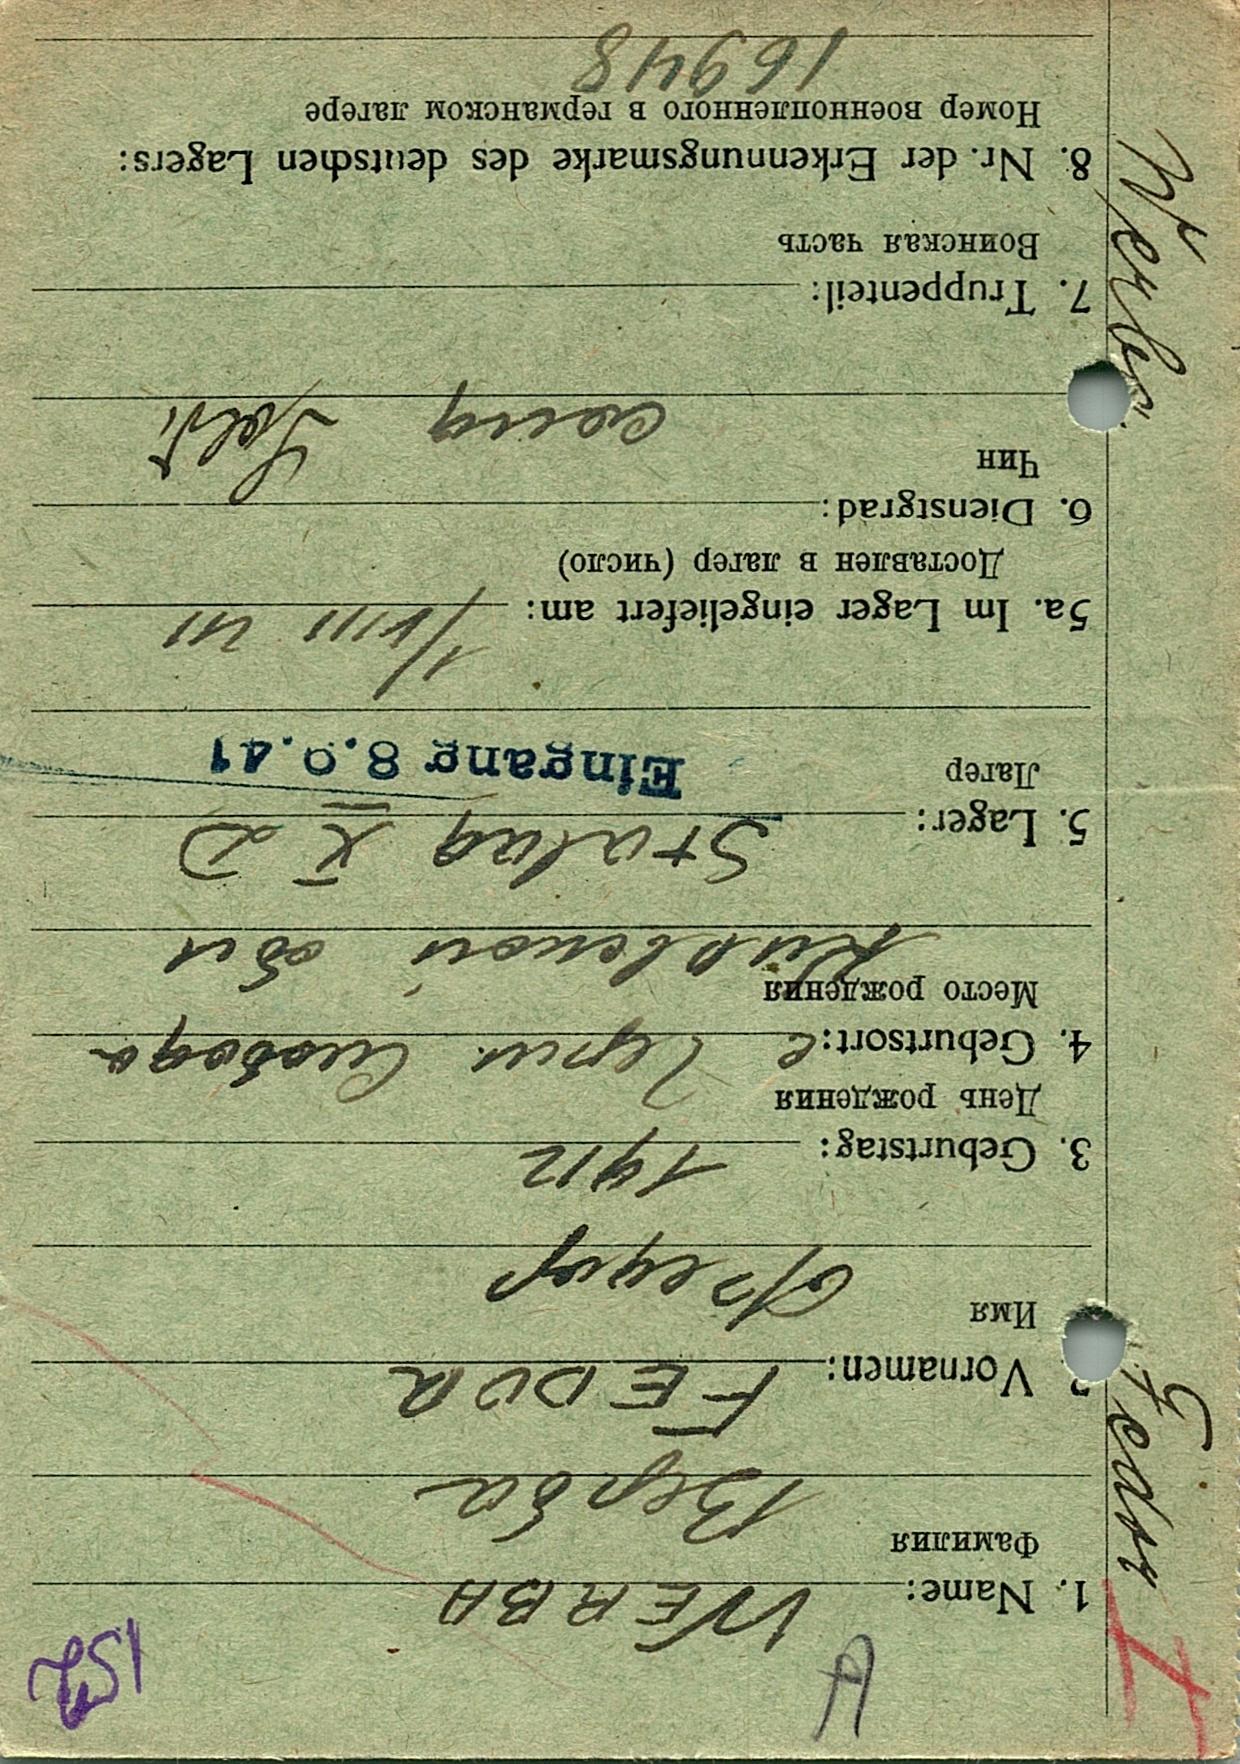 A
152
1. Name: WERBA
Фамилия
Верба
Vornamen: FEDOR
Имя
Федор
3. Geburtstag: 1912
День рождения
4. Geburtsort: с Черн. Слобода
Место рождения
обл
5. Lager: Stalag X D
Лагер
Eingang 8.9.41
5a. Im Lager eingeliefert am: 1/VIII 41
Доставлен в лагер (число)
6. Dienstgrad:
Чин
Sold.
7. Truppenteil:
Воинская часть
8. Nr. der Erkennungsmarke des deutschen Lagers:
Номер военнопленного в германском лагере
16948
I
Fedor
Werba